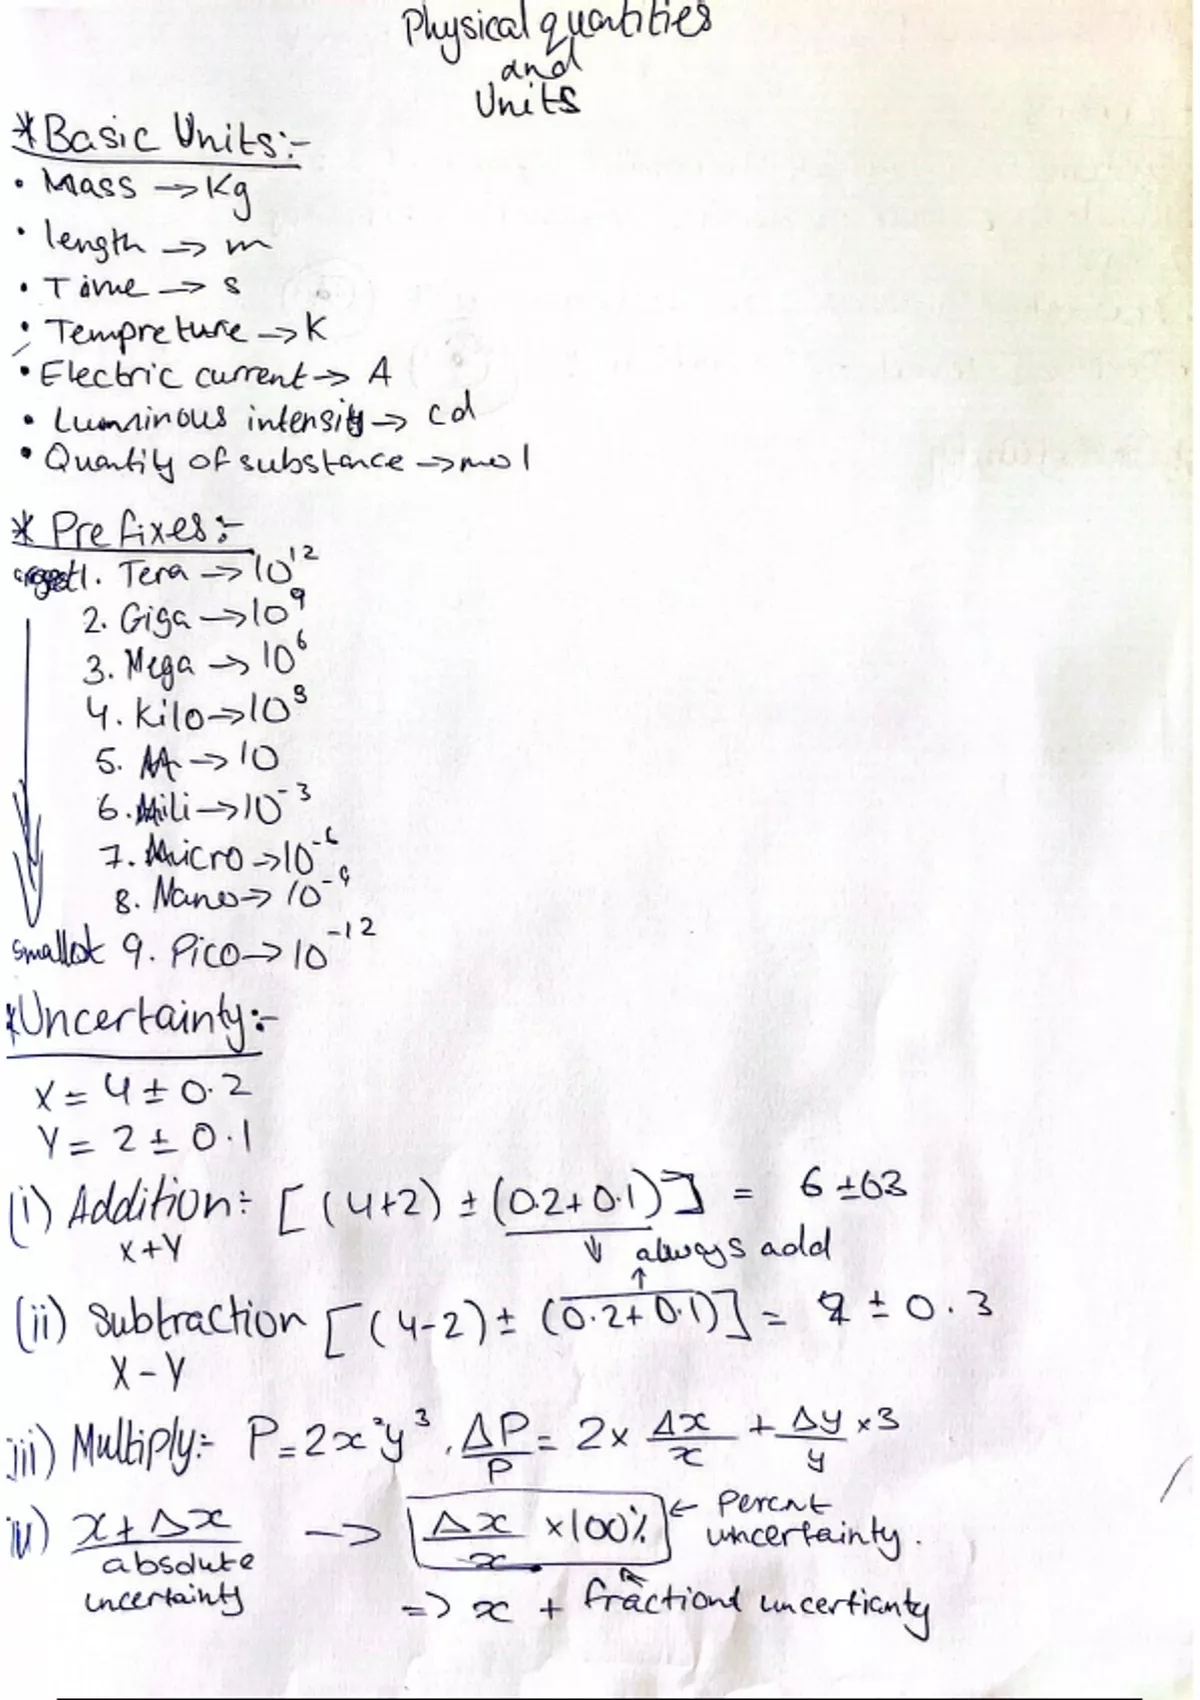 Physical quantities
and
Units
* Basic Units:-
• Mass → Kg
• length → m
• Time → s
• Tempreture → K
• Electric current → A
• Luminous intensity → cd
• Quantity of substance → mol
* Prefixes:-
1. Tera → 10¹²
2. Giga → 10⁹
3. Mega → 10⁶
4. Kilo → 10³
5. → 10
6. Mili → 10⁻³
7. Micro → 10⁻⁶
8. Nano → 10⁻⁹
smallest 9. Pico → 10⁻¹²
*Uncertainty:-
X = 4 ± 0.2
Y = 2 ± 0.1
(i) Addition:- [(4+2) ± (0.2+0.1)] = 6 ±03
X+Y ↓ always add
(ii) Subtraction [(4-2) ± (0.2+0.1)] = 2 ± 0.3
X - Y
iii) Multiply:- P=2x²y³, ΔP/P = 2 × Δx/x + Δy/y ×3
iv) x ± Δx → Δx/x ×100% ← Percent uncertainty.
absolute uncertainty
=> x + fractiond uncertianty